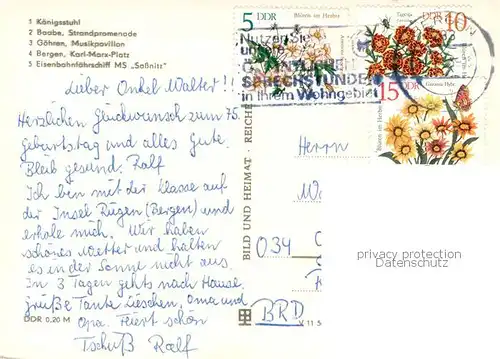 1 Königsstuhl
2 Baabe, Strandpromenade
3 Göhren, Musikpavillon
4 Bergen, Karl-Marx-Platz
5 Eisenbahnfährschiff MS „Saßnitz"
5 DDR
Blüten im Herbst
DDR 10
Tagetes
15
Gazania Hybr.
Blüten im Herbst
Nutzen Sie
unsere
SPRECHSTUNDEN
in Ihrem Wohngebiet
Lieber Onkel Walter!!
Herzlichen Glückwunsch zum 75.
Geburtstag und alles Gute.
Bleib gesund. Ralf
Ich bin mit der Klasse auf
der Insel Rügen (Bergen) und
erhole mich. Wir haben
schönes Wetter und halten
es in der Sonne nicht aus.
In 3 Tagen gehts nach Hause.
Grüße Tante Lieschen, Oma und
Opa. Feiert schön
Tschüß Ralf
DDR 0,20 M
BILD UND HEIMAT · REICHE
Herrn
034
BRD
V 11 5
privacy protection
DatenSchutz